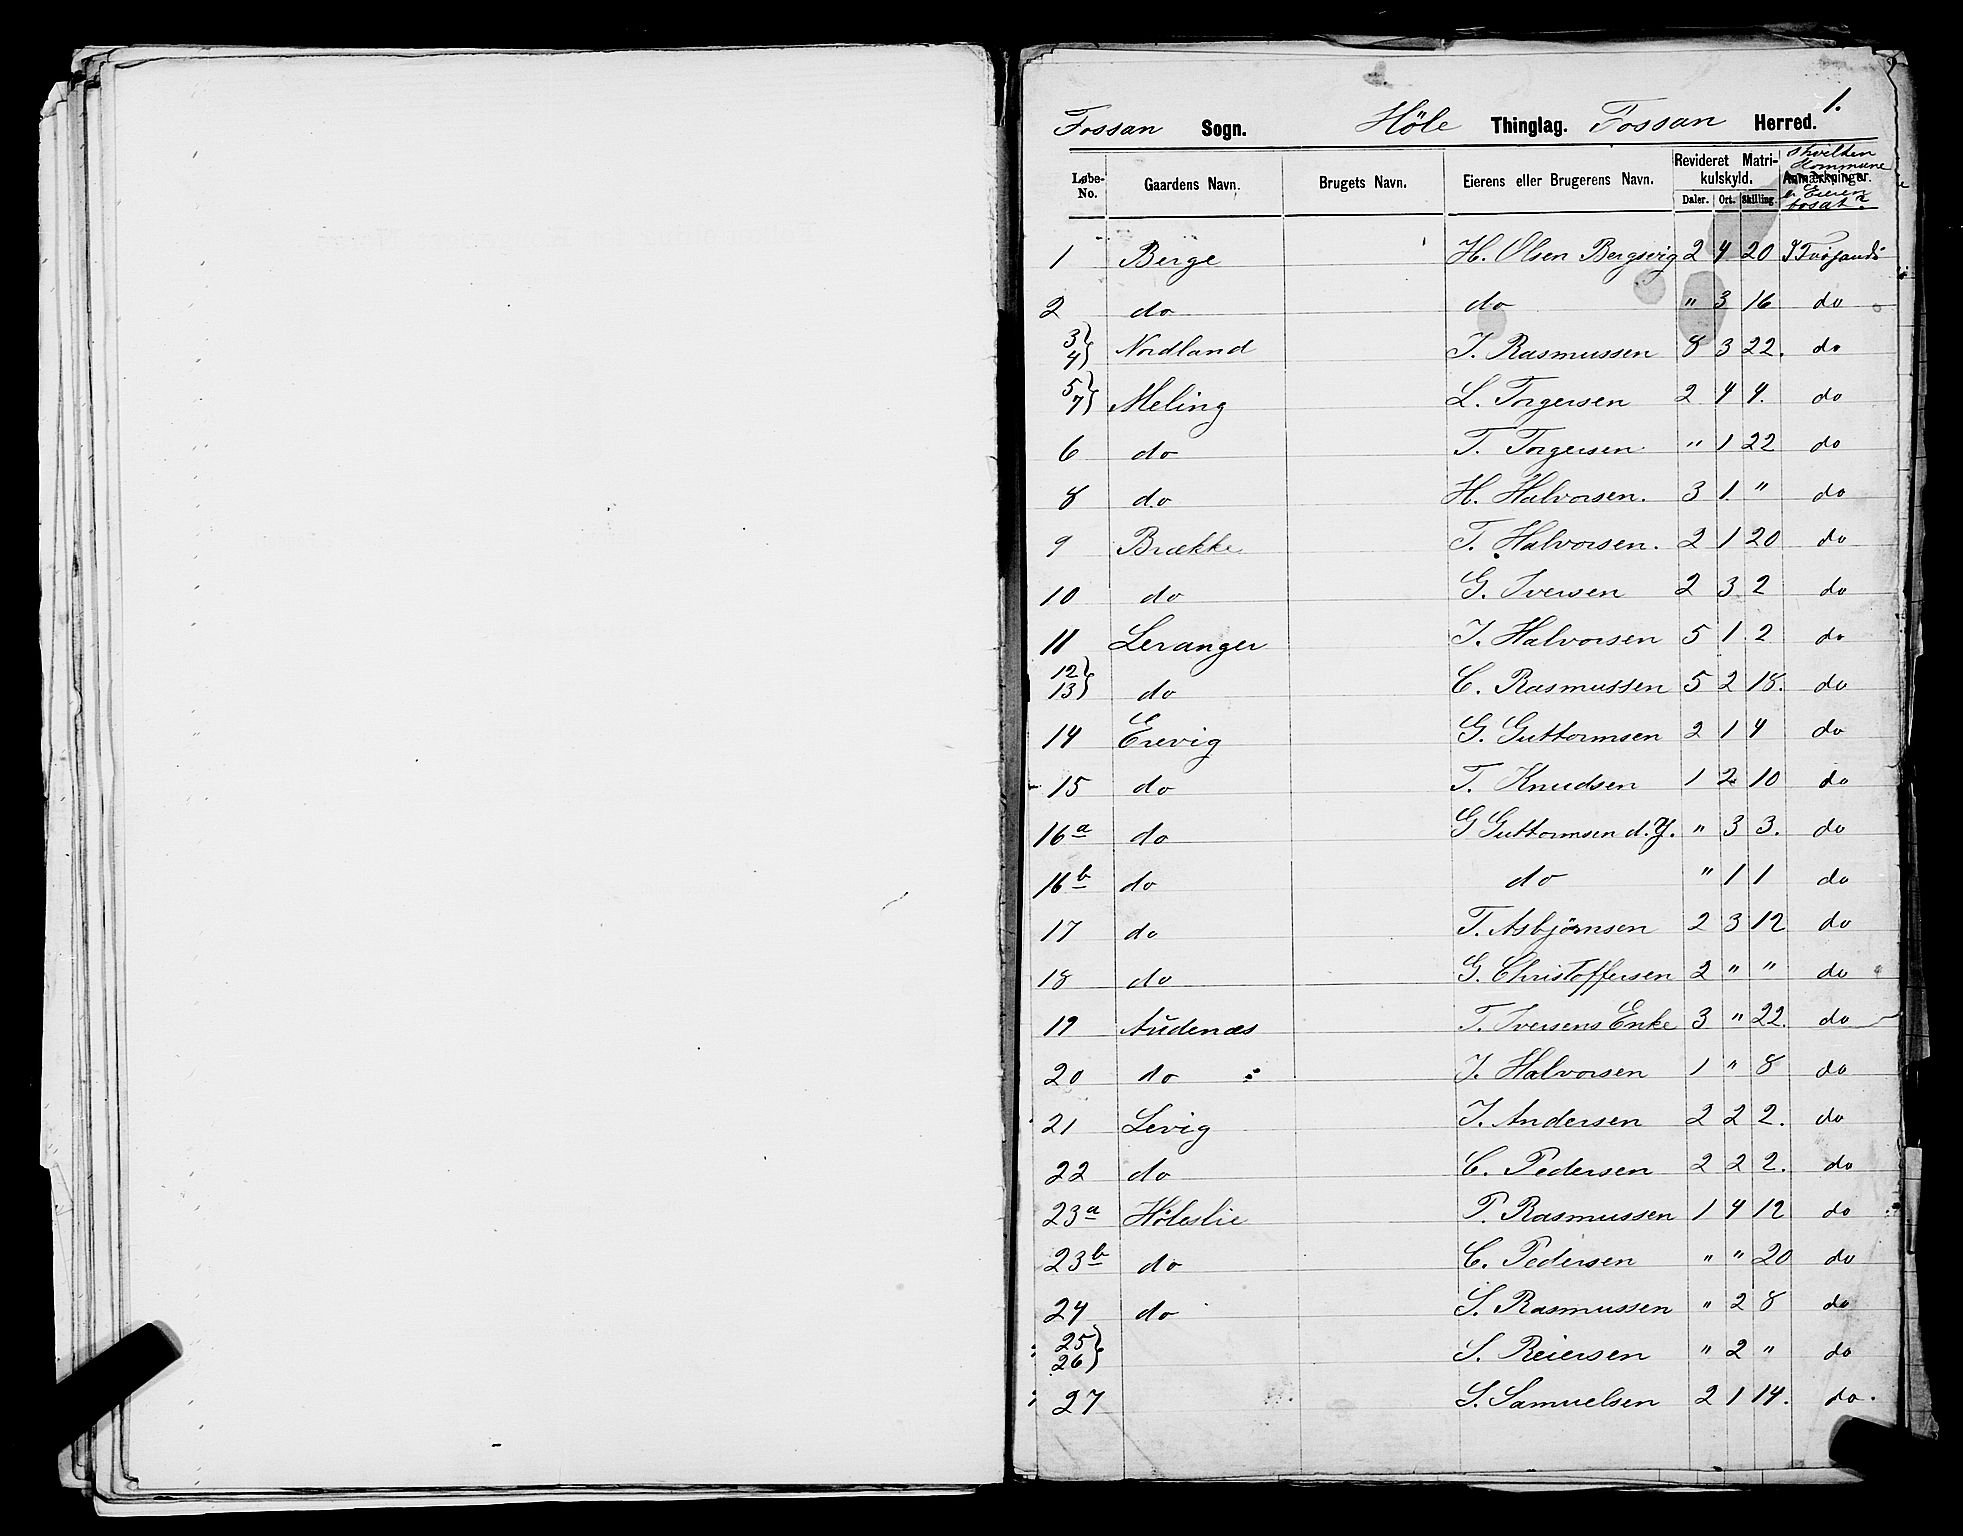 1.
Fossan Sogn. Höle Thinglag. Fossan Herred.
Løbe-No. Gaardens Navn. Brugets Navn. Eierens eller Brugerens Navn. Revideret Matrikulskyld. Daler. Ort. Skilling. Anmærkninger. I hvilken Kommune er Eieren bosat?
1 Berge H. Olsen Bergsvig 2 4 20
2 do do " 3 16 do
3 4 } Nordland J. Rasmussen 8 3 22. do
5 7 } Meling L. Torgersen 2 4 4. do
6 do T. Torgersen " 1 22 do
8 do H. Halvorsen. 3 1. " do
9 Brække T. Halvorsen. 2 1 20 do
10 do G. Iversen 2 3 2 do
11 Leranger J. Halvorsen 5 1 2 do
12 13 } do C. Rasmussen 5 2 18. do
14 Erevig G. Guttormsen 2 1 4 do
15 do T. Knudsen 1 2 10 do
16a do G Guttormsen d.Y. " 3 3. do
16b do do " 1 1 do
17 do T. Asbjörnsen 2 3 12 do
18 do G. Christoffersen 2 " " do
19 Audenæs T. Iversens Enke 3 " 22. do
20 do J. Halvorsen 1 " 8 do
21 Levig J. Andersen 2 2 2. do
22 do C. Pedersen 2 2 2. do
23a Höleslie P. Rasmussen 1 4 12 do
23b do C. Pedersen " " 20 do
24 do S. Rasmussen " 2 8 do
25 26 } S. Reiersen " 2 " do
27 S. Samuelsen 2 1 14. do.